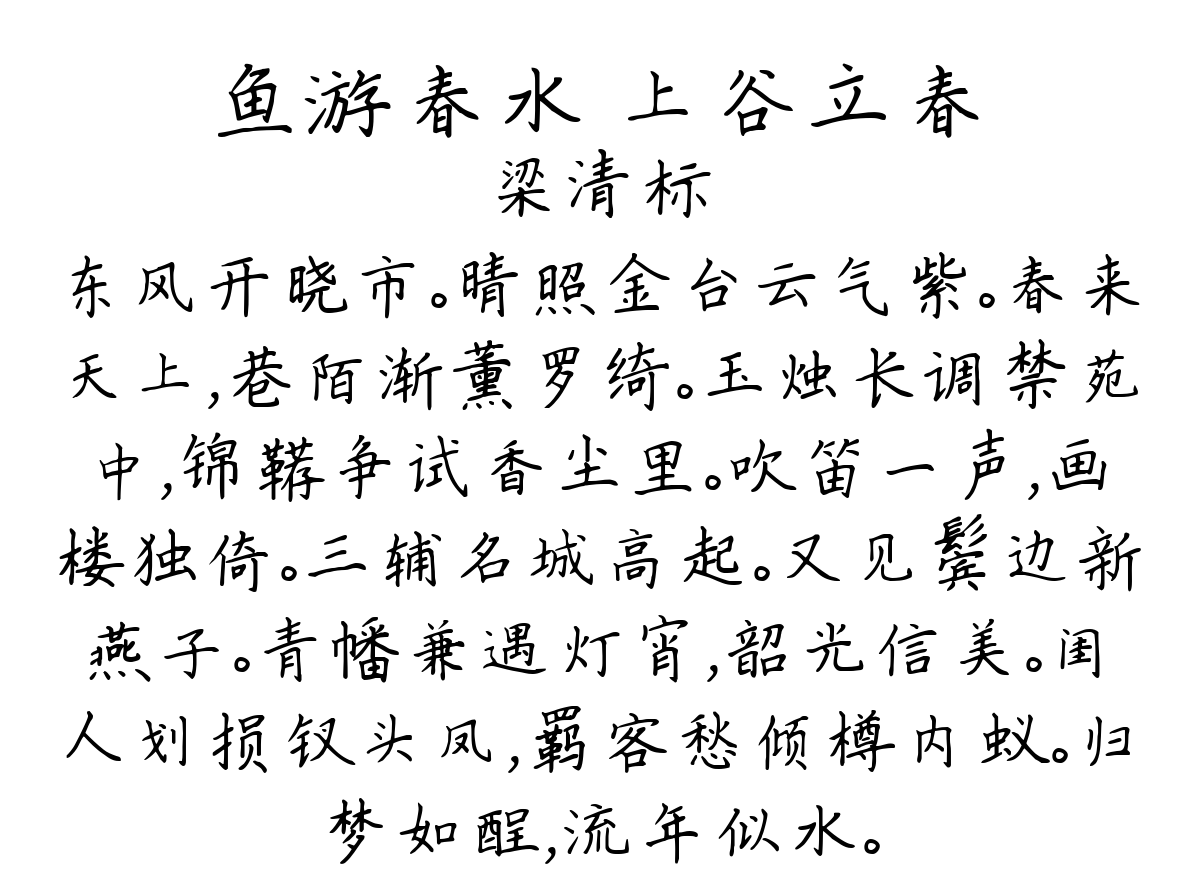 鱼游春水 上谷立春
梁清标
东风开晓市。晴照金台云气紫。春来
天上,巷陌渐薰罗绮。玉烛长调禁苑
中,锦鞯争试香尘里。吹笛一声,画
楼独倚。三辅名城高起。又见鬓边新
燕子。青幡兼遇灯宵,韶光信美。闺
人划损钗头凤,羁客愁倾樽内蚁。归
梦如酲,流年似水。